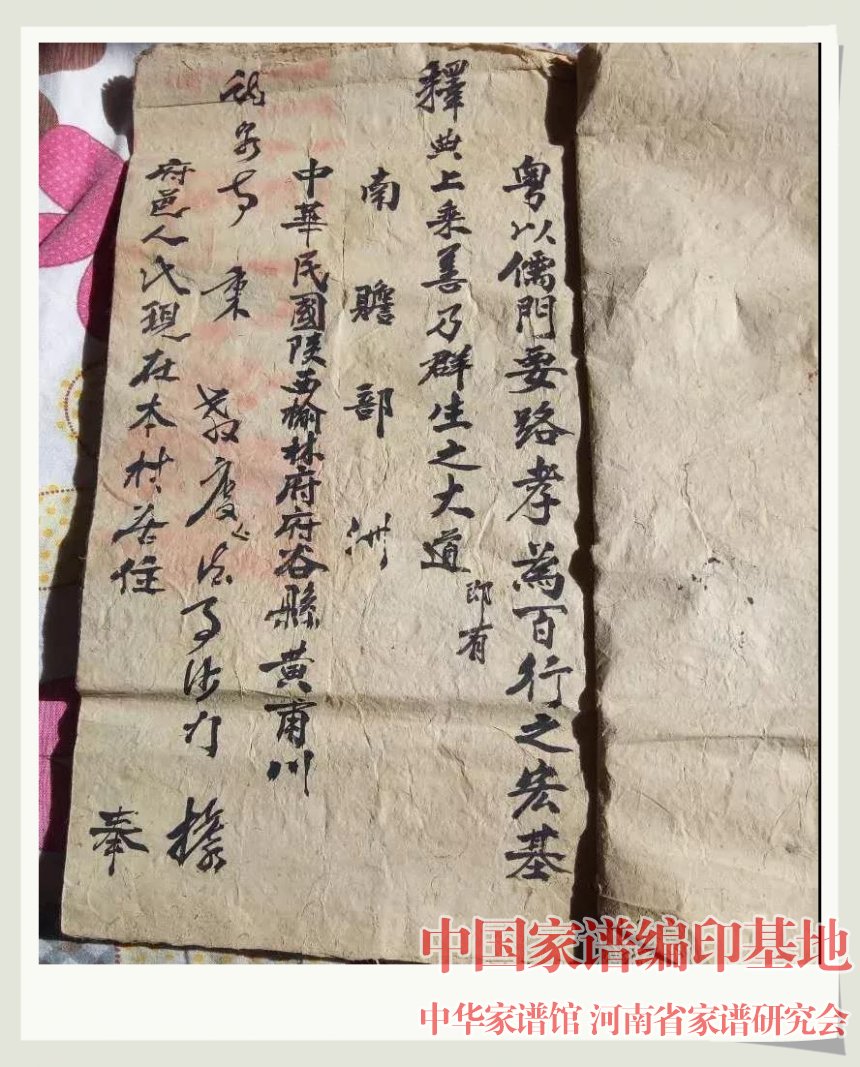 粤以儒門要路孝為百行之宏基
釋典上乘善乃群生之大道
即有
南贍部洲
中華民國陝西榆林府府谷縣黄甫川
秉教慶 法事
據
府邑人氏現在本村居住
奉
中国家谱编印基地
中华家谱馆 河南省家谱研究会